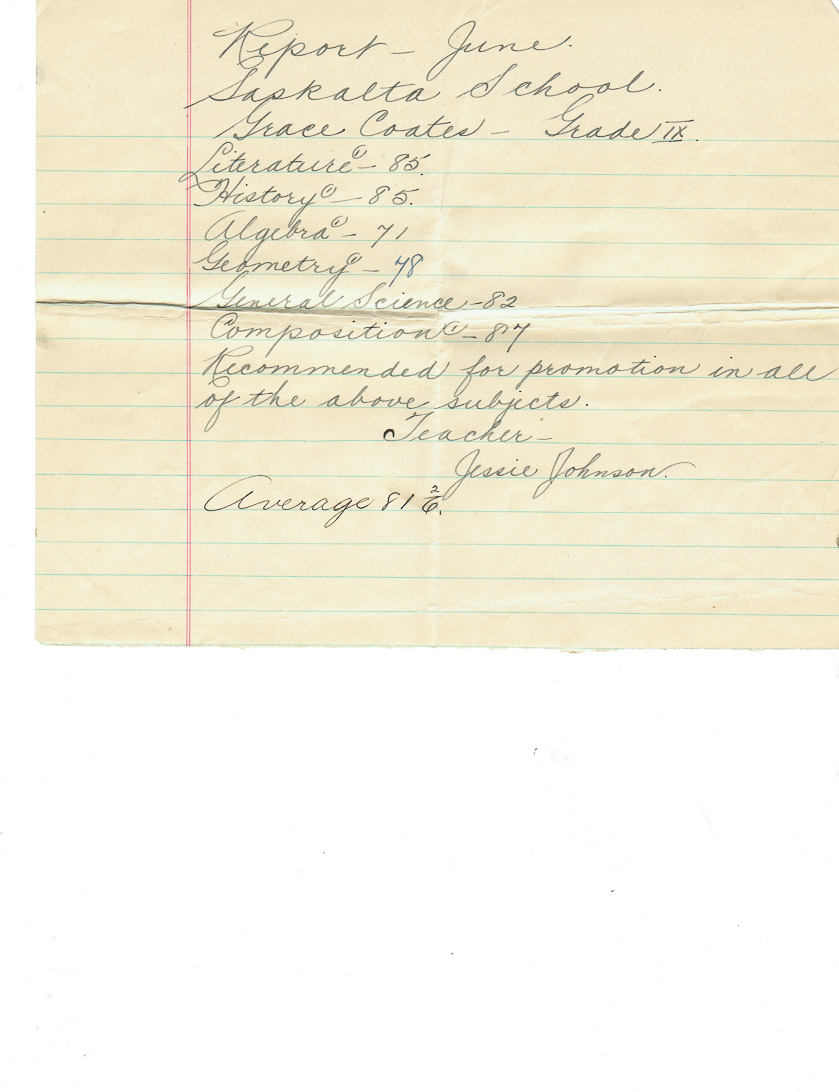 Report – June.
Saskalta School.
Grace Coates – Grade IX.
Literature (1) – 85.
History (1) – 85.
Algebra (1) – 71
Geometry (1) – 78
General Science – 82
Composition (1) – 87
Recommended for promotion in all
of the above subjects.
Teacher –
Jessie Johnson.
Average 81 2/6.